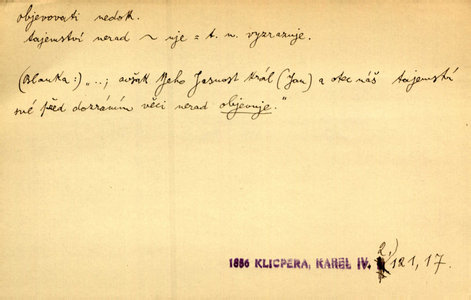 objevovati nedok.
tajemství nerad ~ uje = t. n. vyzrazuje.
(Blanka:) „..; avšak Jeho Jasnost král (Jan) a otec náš tajemství
své před dozráním věci nerad objevuje."
1856 KLICPERA, KAREL IV. 2,) 121, 17.